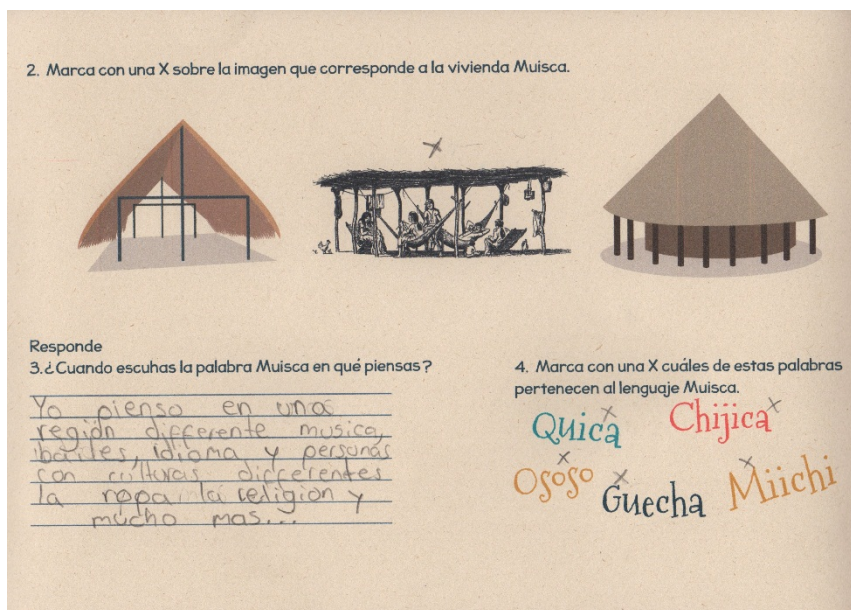 2. Marca con una X sobre la imagen que corresponde a la vivienda Muisca.
X
Responde
3.¿Cuando escuhas la palabra Muisca en qué piensas?
Yo pienso en una
región differente musica,
bailes, idioma y personas
con culturas differentes
la ropa la religion y
mucho mas...
4. Marca con una X cuáles de estas palabras
pertenecen al lenguaje Muisca.
Quica X
Chijica X
Ososo X
Guecha X
Miichi X